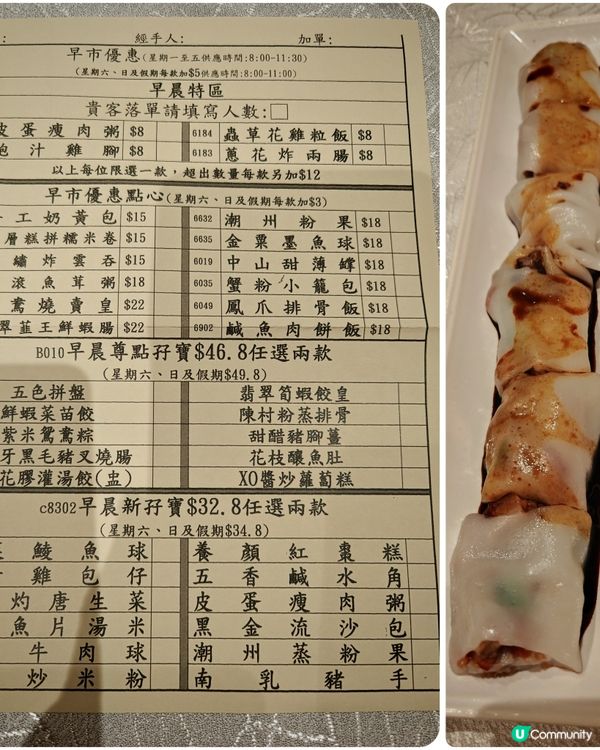 經手人: 加單:
早市優惠(星期一至五供應時間:8:00-11:30)
(星期六、日及假期每款加$5供應時間:8:00-11:00)
早晨特區
貴客落單請填寫人數:
皮蛋瘦肉粥 $8 6184 蟲草花雞粒飯 $8
汁雞腳 $8 6183 蔥花炸兩腸 $8
以上每位限選一款,超出數量每款另加$12
早市優惠點心(星期六、日及假期每款加$3)
工奶黃包 $15 6632 潮州粉果 $18
層糕拼糯米卷 $15 6635 金粟墨魚球 $18
鏽炸雲吞 $15 6019 中山甜薄罉 $18
滾魚茸粥 $18 6035 蟹粉小籠包 $18
鴛燒賣皇 $22 6049 鳳爪排骨飯 $18
翠韮王鮮蝦腸 $22 6902 鹹魚肉餅飯 $18
B010早晨尊點孖寶$46.8任選兩款
(星期六、日及假期$49.8)
五色拼盤 翡翠筍蝦餃皇
鮮蝦菜苗餃 陳村粉蒸排骨
紫米鴛鴦粽 甜醋豬腳薑
牙黑毛豬叉燒腸 花枝釀魚肚
花膠灌湯餃(盅) XO醬炒蘿蔔糕
c8302早晨新孖寶$32.8任選兩款
(星期六、日及假期$34.8)
鯪魚球 養顏紅棗糕
雞包仔 五香鹹水角
灼唐生菜 皮蛋瘦肉粥
魚片湯米 黑金流沙包
牛肉球 潮州蒸粉果
炒米粉 南乳豬手
U Community